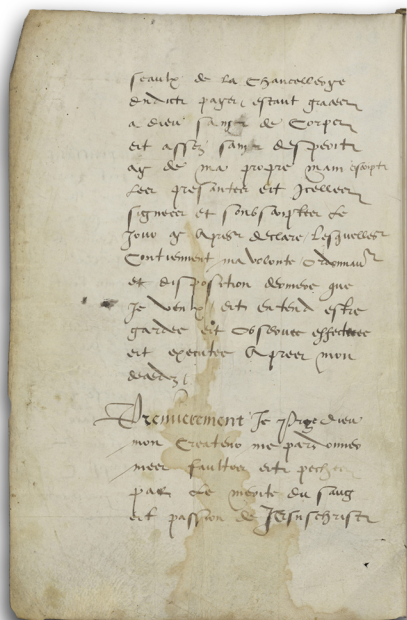 seaulx de la Chancellerye
dudict pays, estant graces
a dieu sain de Corps
et assez sain d'esperit
ay de ma propre main escript
les presantes et Icelles
signees et soubscriptes Le
Jour cy Apres declare, Lesquelles
Contiennent ma volonte Ordonnance
et disposition derniere que
Je veulx et entend estre
gardee et Observee
et executee Apres mon
deces,
Premierement Je Prye dieu
mon Createur me pardonner
mes faultes et pechez
par Le merite du sang
et passion de Jesuschrist